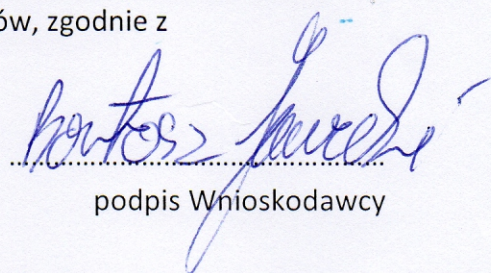 ów, zgodnie z
Bartosz
........................................................
podpis Wnioskodawcy